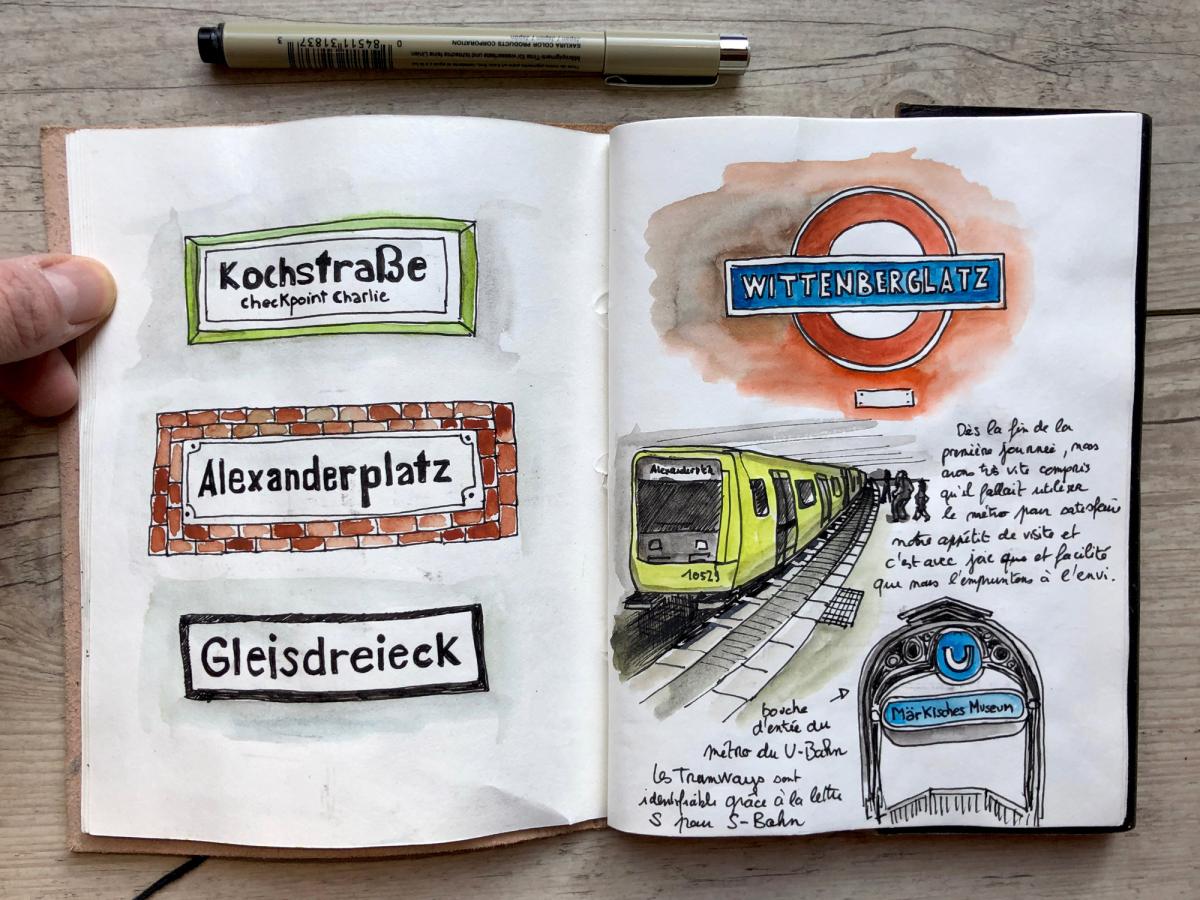 0 84511 31837 3
SAKURA COLOR PRODUCTS CORPORATION
Kochstraße
checkpoint Charlie
Alexanderplatz
Gleisdreieck
WITTENBERGLATZ
Dès la fin de la
première journée, nous
avons très vite compris
qu'il fallait utiliser
le métro pour satisfaire
notre appétit de visite et
c'est avec joie que et facilité
que nous l'empruntons à l'envi.
10529
bouche
d'entée du
métro du U-Bahn
Les Tramways sont
identifiable grâce à la lettre
S pour S-Bahn
U
Märkisches Museum